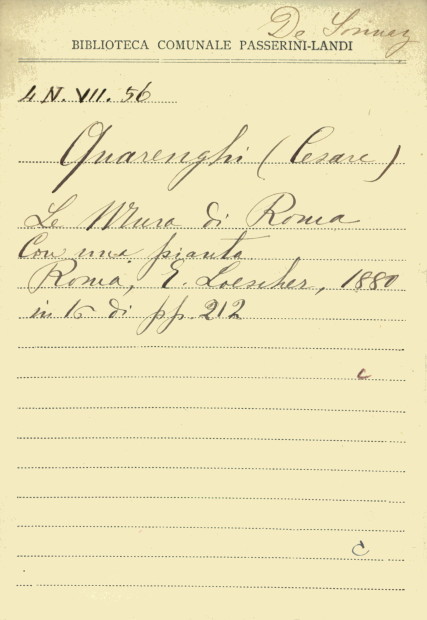 De Sonnaz
BIBLIOTECA COMUNALE PASSERINI-LANDI
4 N. VII. 56
Quarenghi (Cesare)
Le Mura di Roma
Con una pianta
Roma, E. Loescher, 1880
in 16 di pp. 212
c
c